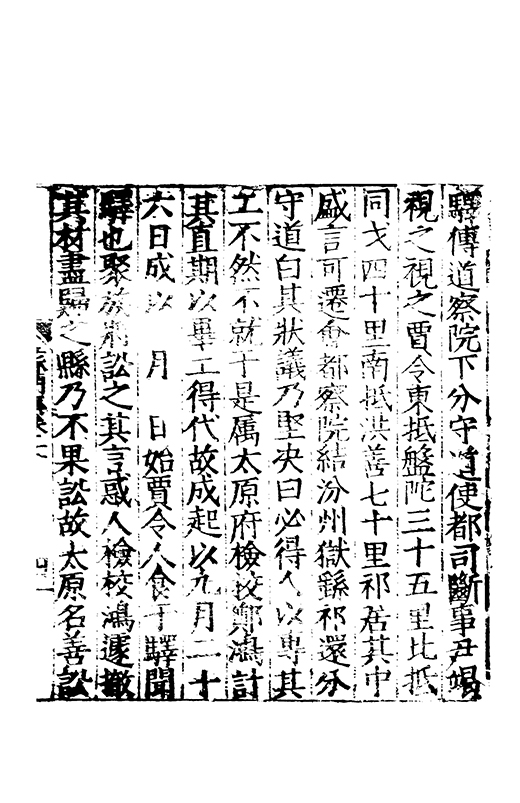 驛傳道察院下分守道使都司斷事尹竭
視之視之賈令東抵盤陀三十五里北抵
同戈四十里南抵洪善七十里祁居其中
盛言可遷會都察院結汾州獄繇祁還分
守道白其狀議乃堅決曰必得人以專其
工不然不就于是属太原府檢校鄭鴻計
其直期以畢工得代故成起以九月二十
六日成以 月 日始賈令人食于驛聞
驛也聚族訟之其言惑人檢校鴻遽撤
其材盡歸之縣乃不果訟故太原名善訟